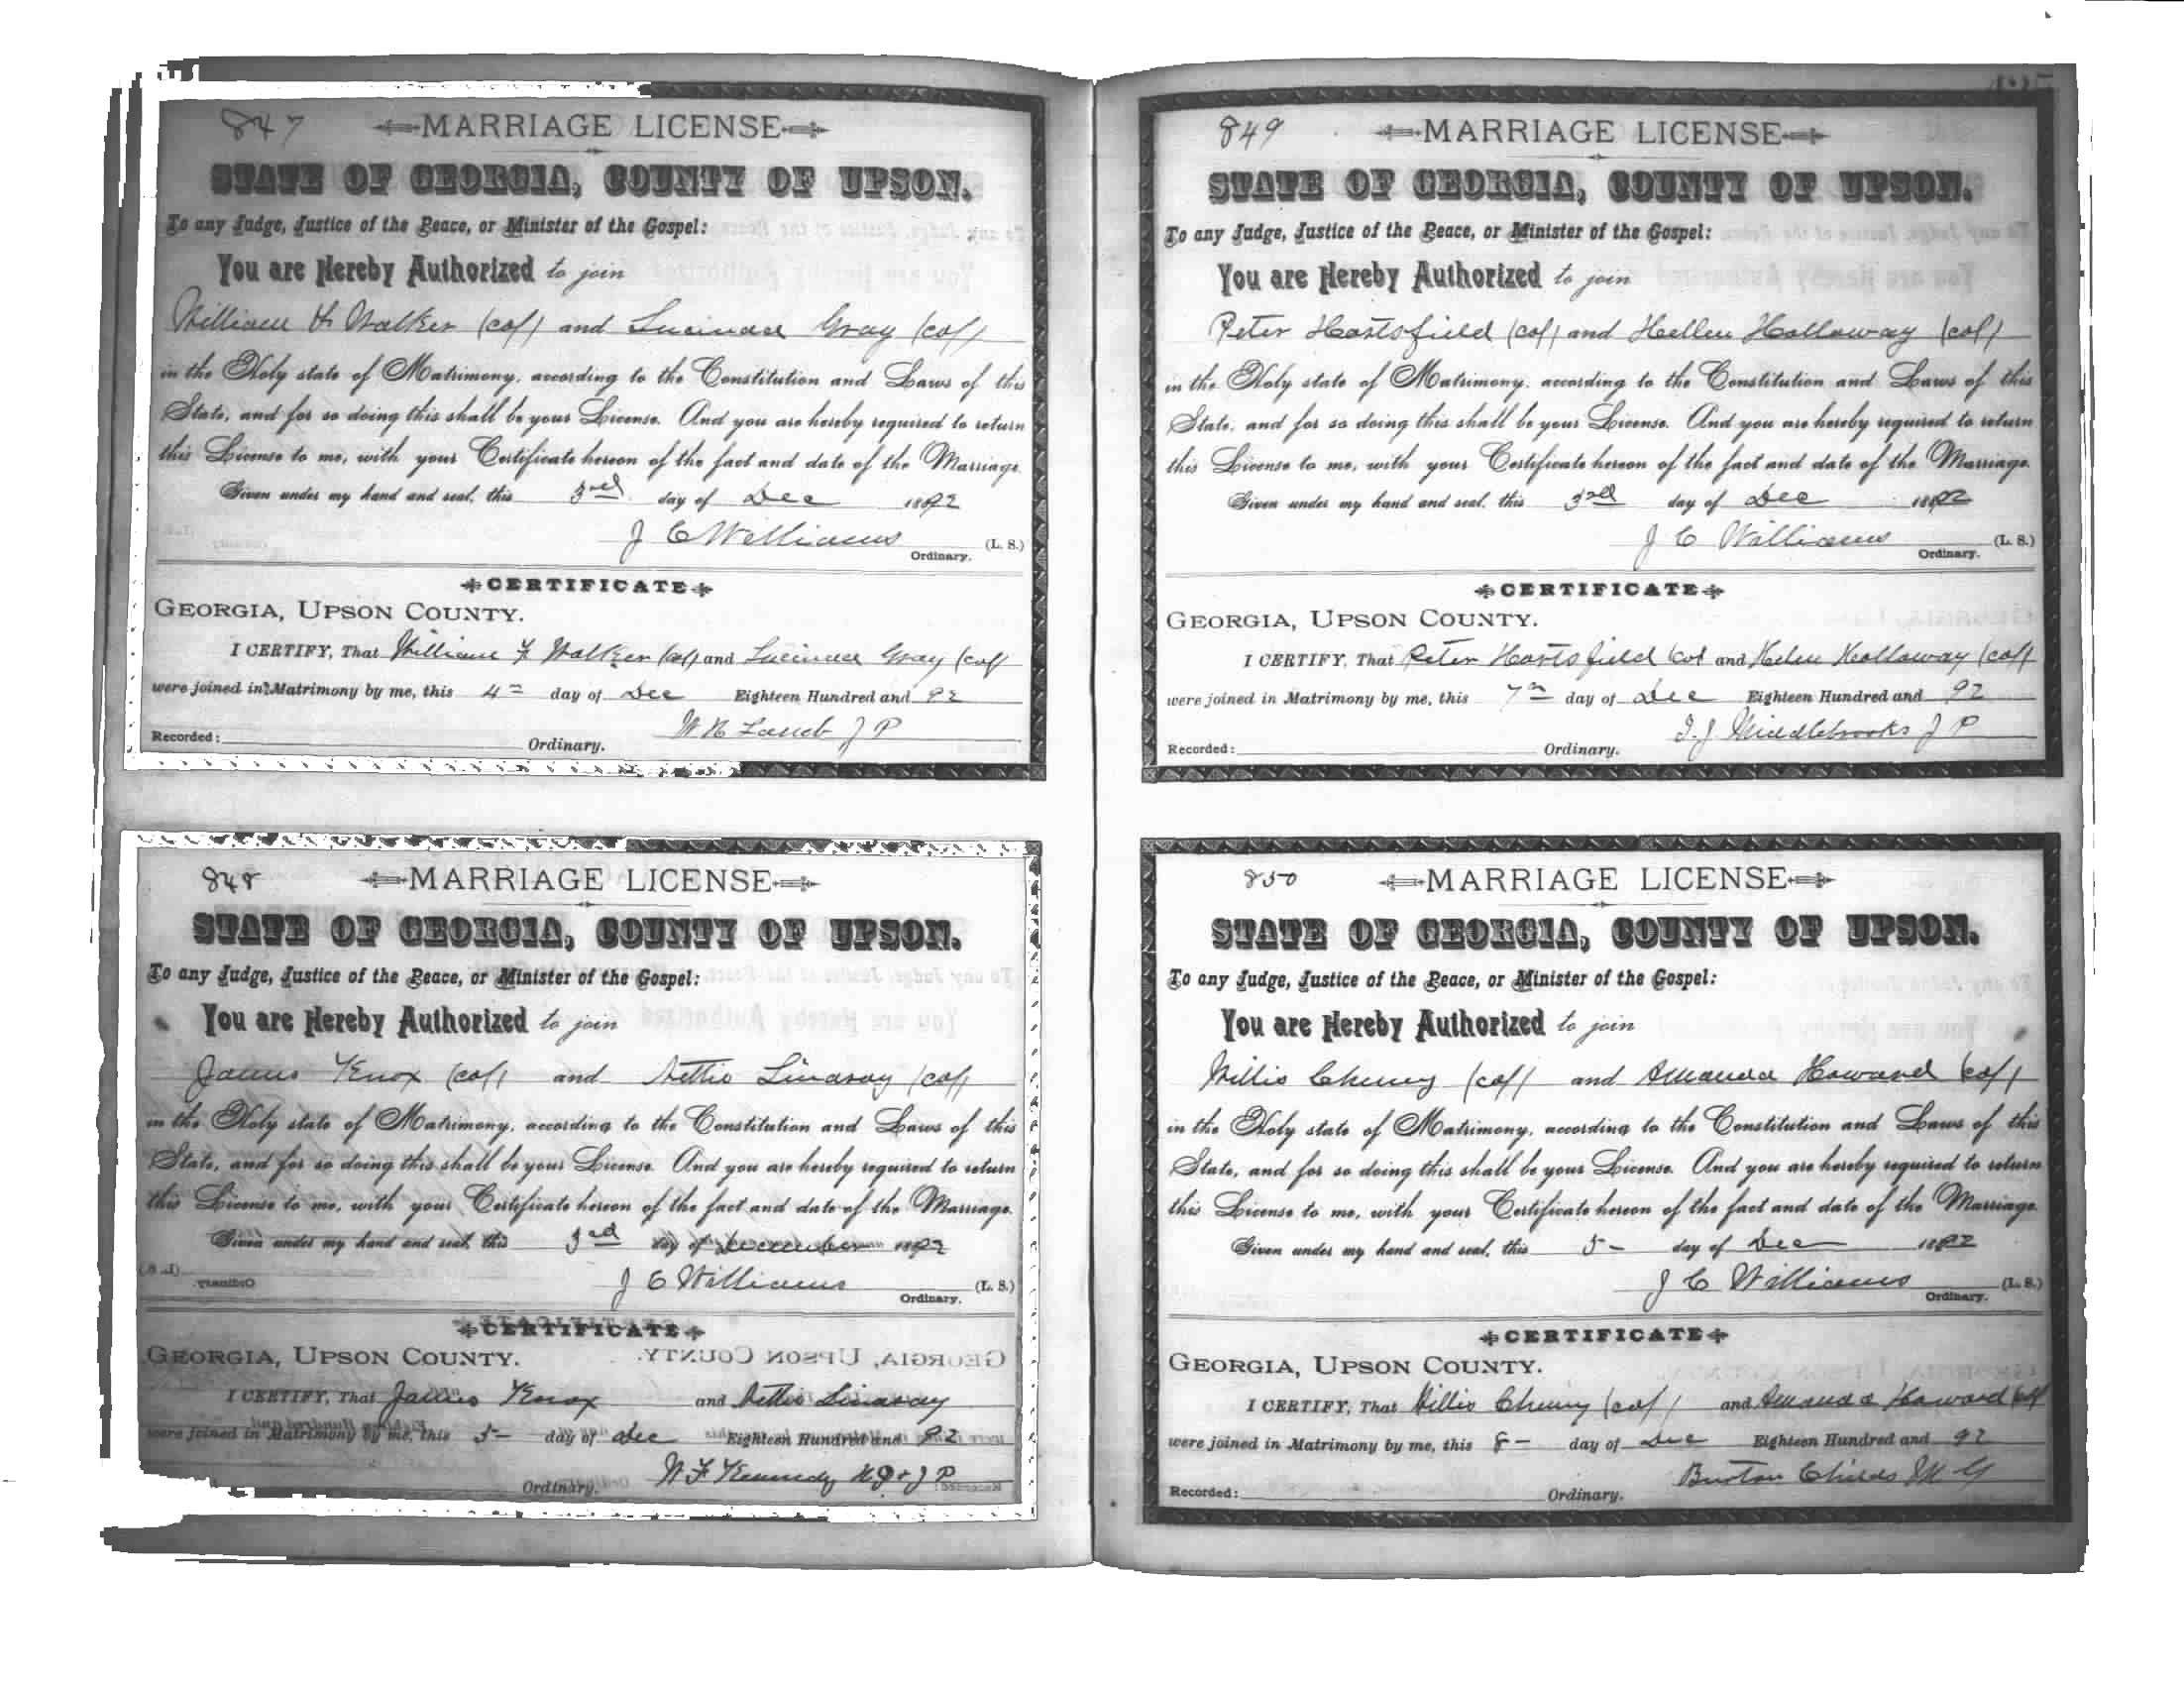 847 MARRIAGE LICENSE
STATE OF GEORGIA, COUNTY OF UPSON.
To any Judge, Justice of the Peace, or Minister of the Gospel:
You are Hereby Authorized to join
William H Walker (col) and Lucinda Gray (col)
in the Holy state of Matrimony, according to the Constitution and Laws of this
State, and for so doing this shall be your License. And you are hereby required to return
this License to me, with your Certificate hereon of the fact and date of the Marriage.
Given under my hand and seal, this 3rd day of Dec 1892
J C Williams (L. S.)
Ordinary.
CERTIFICATE
GEORGIA, UPSON COUNTY.
I CERTIFY, That William Walker (col) and Lucinda Gray (col)
were joined in Matrimony by me, this 4th day of Dec Eighteen Hundred and 92
J P
Recorded: Ordinary.
848 MARRIAGE LICENSE
STATE OF GEORGIA, COUNTY OF UPSON.
To any Judge, Justice of the Peace, or Minister of the Gospel:
You are Hereby Authorized to join
James Knox (col) and Nettie Lindsay (col)
in the Holy state of Matrimony, according to the Constitution and Laws of this
State, and for so doing this shall be your License. And you are hereby required to return
this License to me, with your Certificate hereon of the fact and date of the Marriage.
Given under my hand and seal, this 3rd day of December 1892
J C Williams (L. S.)
Ordinary.
CERTIFICATE
GEORGIA, UPSON COUNTY.
I CERTIFY, That James Knox and Nettie Lindsay
were joined in Matrimony by me, this 5- day of Dec Eighteen Hundred and 92
W F Kennedy J P
Ordinary.
849 MARRIAGE LICENSE
STATE OF GEORGIA, COUNTY OF UPSON.
To any Judge, Justice of the Peace, or Minister of the Gospel:
You are Hereby Authorized to join
Peter Hartsfield (col) and Hellen Holloway (col)
in the Holy state of Matrimony, according to the Constitution and Laws of this
State, and for so doing this shall be your License. And you are hereby required to return
this License to me, with your Certificate hereon of the fact and date of the Marriage.
Given under my hand and seal, this 3rd day of Dec 1892
J C Williams (L. S.)
Ordinary.
CERTIFICATE
GEORGIA, UPSON COUNTY.
I CERTIFY, That Peter Hartsfield col and Helen Holloway (col)
were joined in Matrimony by me, this 7th day of Dec Eighteen Hundred and 92
Middlebrooks J P
Recorded: Ordinary.
850 MARRIAGE LICENSE
STATE OF GEORGIA, COUNTY OF UPSON.
To any Judge, Justice of the Peace, or Minister of the Gospel:
You are Hereby Authorized to join
Willis Cheney (col) and Amanda Howard (col)
in the Holy state of Matrimony, according to the Constitution and Laws of this
State, and for so doing this shall be your License. And you are hereby required to return
this License to me, with your Certificate hereon of the fact and date of the Marriage.
Given under my hand and seal, this 5- day of Dec 1892
J C Williams (L. S.)
Ordinary.
CERTIFICATE
GEORGIA, UPSON COUNTY.
I CERTIFY, That Willis Cheney (col) and Amanda Howard col
were joined in Matrimony by me, this 8- day of Dec Eighteen Hundred and 92
Burton Childs M G
Recorded: Ordinary.